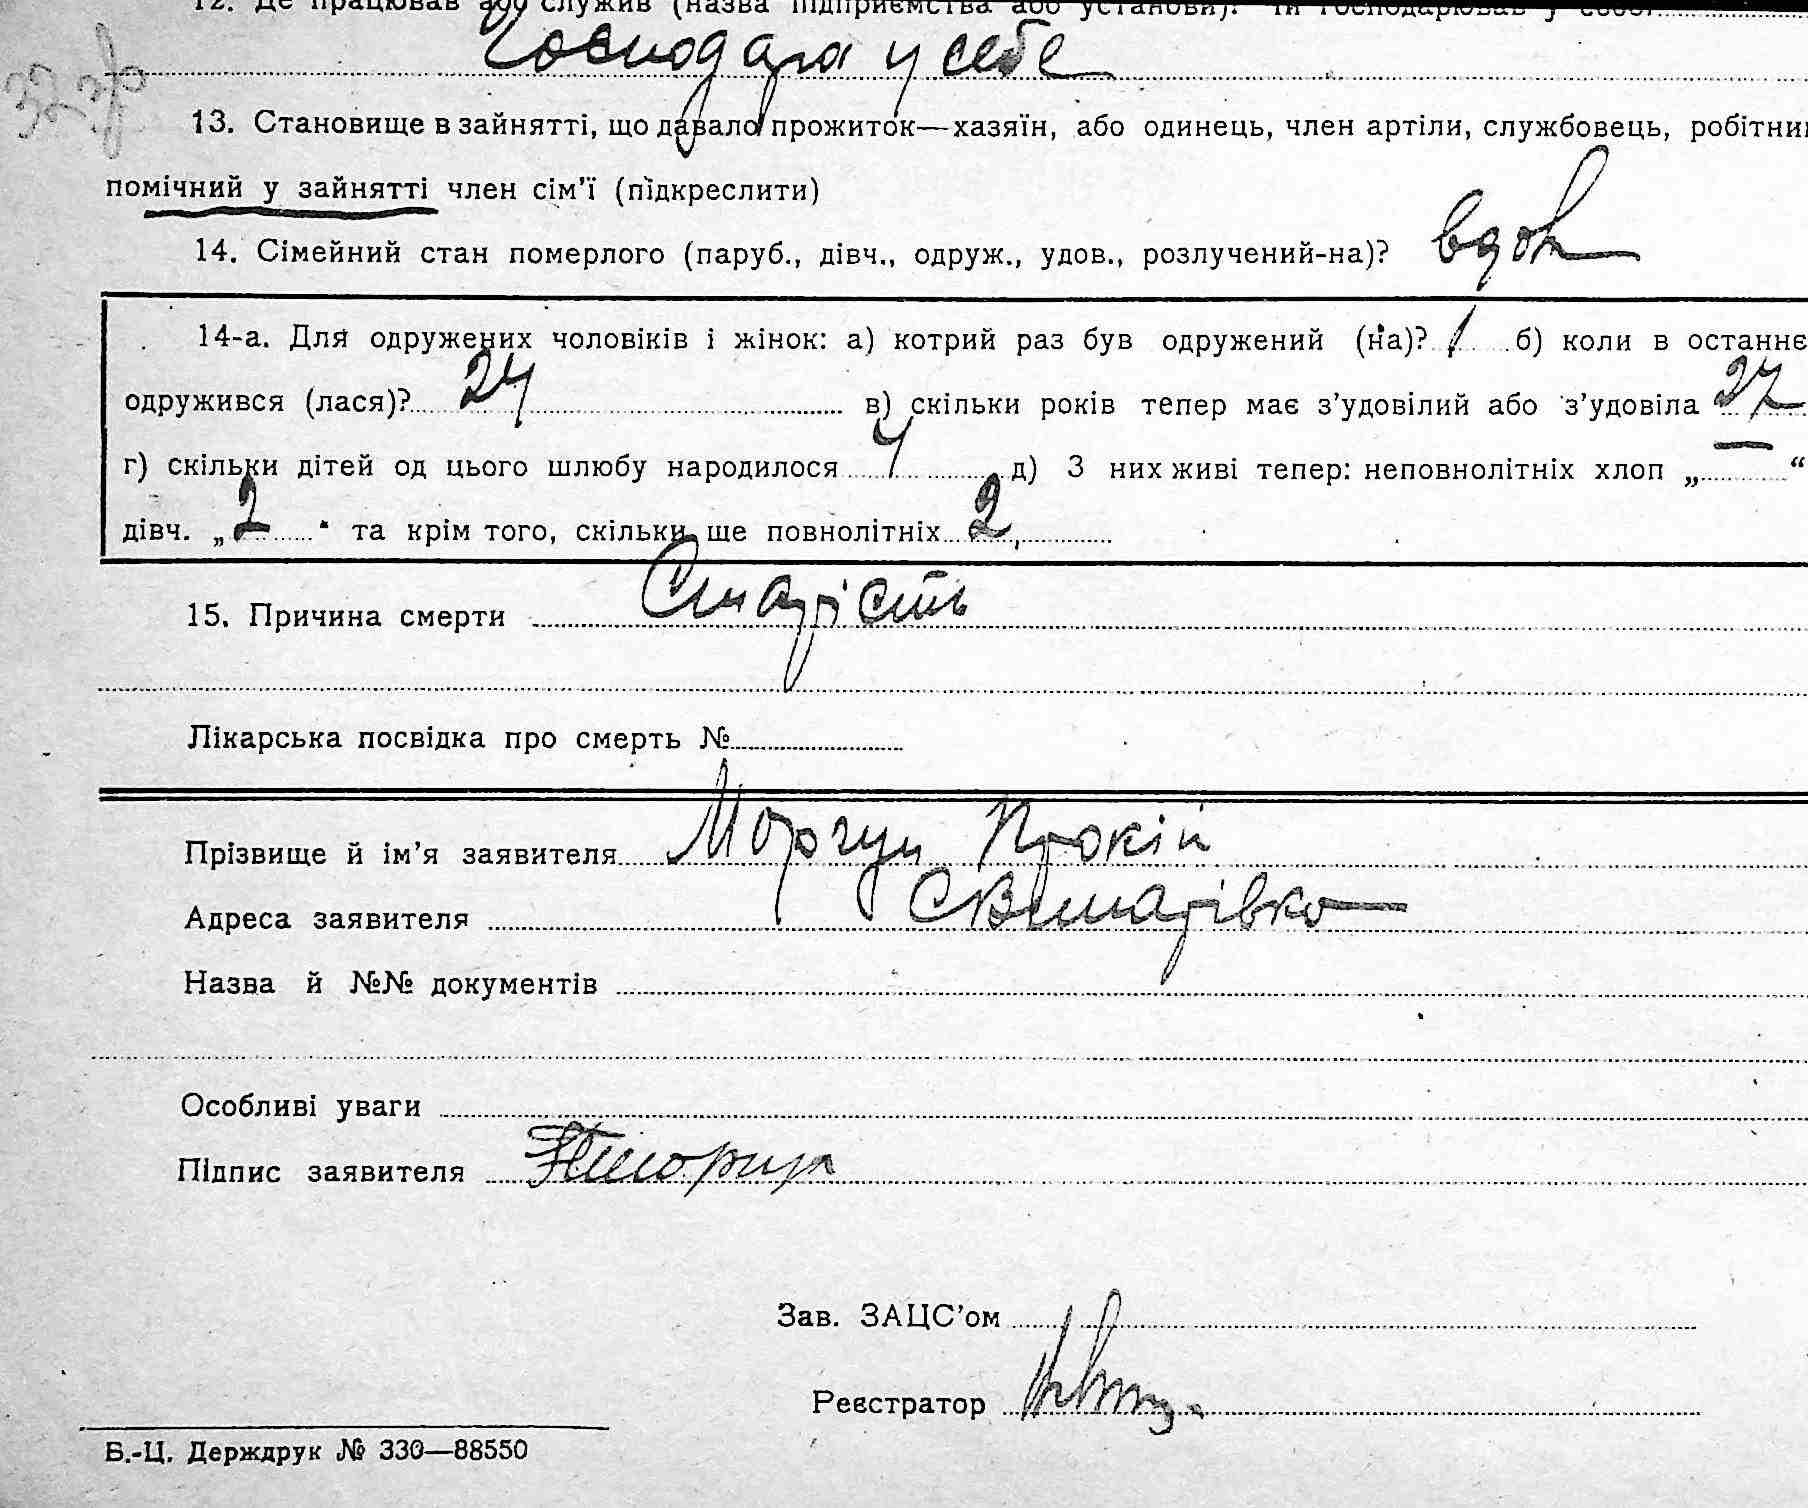 12. Де працював або служив (назва підприємства або установи)? Чи господарював у себе?
Господарч у себе
13. Становище в зайнятті, що давало прожиток—хазяїн, або одинець, член артіли, службовець, робітник
помічний у зайнятті член сім'ї (підкреслити)
14. Сімейний стан померлого (паруб., дівч., одруж., удов., розлучений-на)? вдов
14-а. Для одружених чоловіків і жінок: а) котрий раз був одружений (на)? 1 б) коли в останнє
одружився (лася)? 24 в) скільки років тепер має з'удовілий або з'удовіла 27
г) скільки дітей од цього шлюбу народилося 4 д) З них живі тепер: неповнолітніх хлоп „ — “
дівч. „ 2 “ та крім того, скільки ще повнолітніх 2
15. Причина смерти Старість
Лікарська посвідка про смерть №
Прізвище й ім'я заявителя Моргун Прокіп
Адреса заявителя
Назва й №№ документів
Особливі уваги
Підпис заявителя
Зав. ЗАЦС'ом
Реєстратор
Б.-Ц. Держдрук № 330—88550